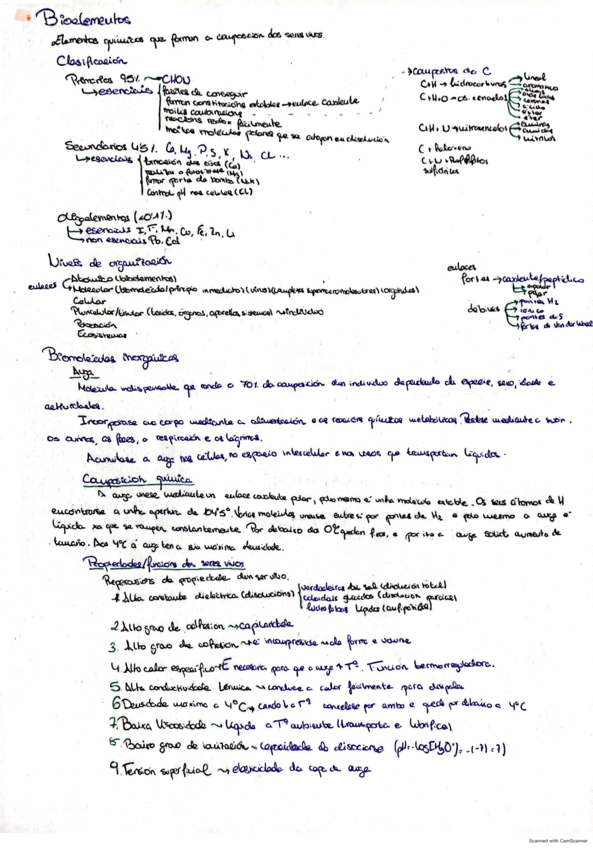 Bioelementos
Elementos químicos que forman a composicion dos seres vivos.
Clasificación
Primarios 95% → CHON
→ esenciais
faciles de conseguir
forman constitucións estables → enlace covalente
moitas combinacions
reaccions redox facilmente
moitas moléculas polares que se atopan en disolución
→ compostos do C
C+H → hidrocarburos
lineal
aromatico
C+H+O → os. cenados
cetonas
acido
ester
eter
C+H+N → nitrogenados
aminas
amidas
nitrilos
C+
C+N+
sulfidrica
Secundarios 4'5% Ca, Mg, P, S, K, Na, Cl ...
→ esenciais
formación dos osos (Ca)
realizar a fotosíntese (Mg)
formar parte de bombas (Na/K)
control pH nas celulas (Cl)
Oligoelementos (<0'1%)
→ esenciais I, F, Mn, Co, Fe, Zn, Li
→ non esenciais Pb, Cd
Niveis de organización
enlaces
Atomico (bioelementos)
Molecular (biomolécula/principio inmediato) (virus) (complexos supramoleculares) (orgánulos)
Celular
Pluricelular/tisular (tecidos, órganos, aparellos, sistemas) → individuo
Poboación
Ecosistemas
enlaces
fortes → covalente/peptídico
apolar
polar
debiles
pontes H2
iónico
pontes diS
forzas de Van der Waals
Biomoléculas inorgánicas
Auga
Molécula indispensable que ronda o 70% da composición dun individuo dependendo da especie, sexo, idade e
actividades.
Incorpórase ao corpo mediante a alimentación e as reaccións químicas metabólicas. Perdese mediante a suor,
os ouriños, as feces, a respiración e as lágrimas.
Acumulase a auga nas células, no espacio intercelular e nos vasos que transportan líquidos.
Composición química
A auga únese mediante un enlace covalente polar, polo mesmo é unha molécula estable. Os seus átomos de H
encontranse a unha apertura de 104'5°. Varias moléculas unense entre si por pontes de H2 e polo mesmo a auga é
líquida xa que se rompen constantemente. Por debaixo da 0°C quedan fixos, e por iso a auga solida aumenta de
tamaño. Aos 4°C a auga ten a súa máxima densidade.
Propiedades/funcións dos seres vivos
Repercusions da propiedade dun ser vivo.
1. Alta constante dielectrica (disolucions)
verdadeiras Ex: sal (disolución total)
coloidais glucidos (disolucion parcial)
hidrofobas lipidos (anfipatida)
2. Alto grao de adhesion → capilaridade
3. Alto grao de cohesion → é incompresible → da forma e volume
4. Alto calor especifico → É necesaria para que a auga ↑ Tº. Función termorreguladora.
5. Alta conductividade térmica → conduce a calor facilmente para disipala
6. Densidade maxima a 4°C → cando b a Tª conxélase por arriba e queda por debaixo a 4°C
7. Baixa Viscosidade → liquida a Tª ambiente (transporta e lubrifica)
8. Baixo grao de ionización → capacidade de disociarse (pH = -log[H3O+] = -(-7) = 7)
9. Tension superficial → elasticidade da capa de auga
Scanned with CamScanner